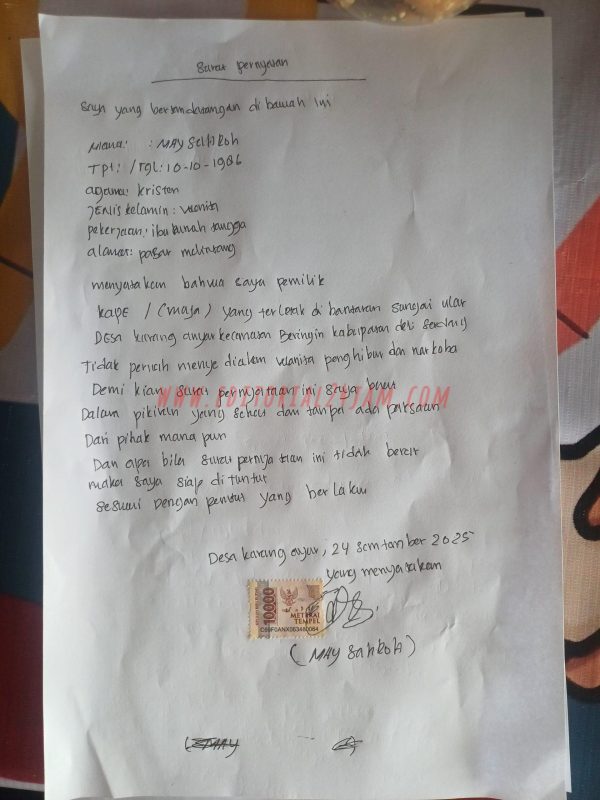 Surat pernyataan
Saya yang bertandatangan di bawah ini
Nama: : MAY Sahkoh
Tpt: / Tgl: 10-10-1986
agama: kristen
JENIS kelamin: wanita
pekerjaan: ibu rumah tangga
alamat: pasar melintang
menyatakan bahwa saya pemilik
kape / (maja) yang terletak di bantaran sungai ular
DESA karang anyar kecamatan Beringin kabupaten deli serdang
Tidak pernah menyediakan wanita penghibur dan narkoba
Demi kian surat pernyataan ini saya buat
WWW.EDITORIAL24JAM.COM
Dalam pikiran yang sehat dan tanpa ada paksaan
Dari pihak mana pun
Dan apa bila surat pernyataan ini tidak benar
maka saya siap di tuntut
sesuai dengan yang berlaku
Desa karang anyar, 24 2025
yang menyatakan
10000
METERAI
TEMPEL
(MAY Sahkoh)